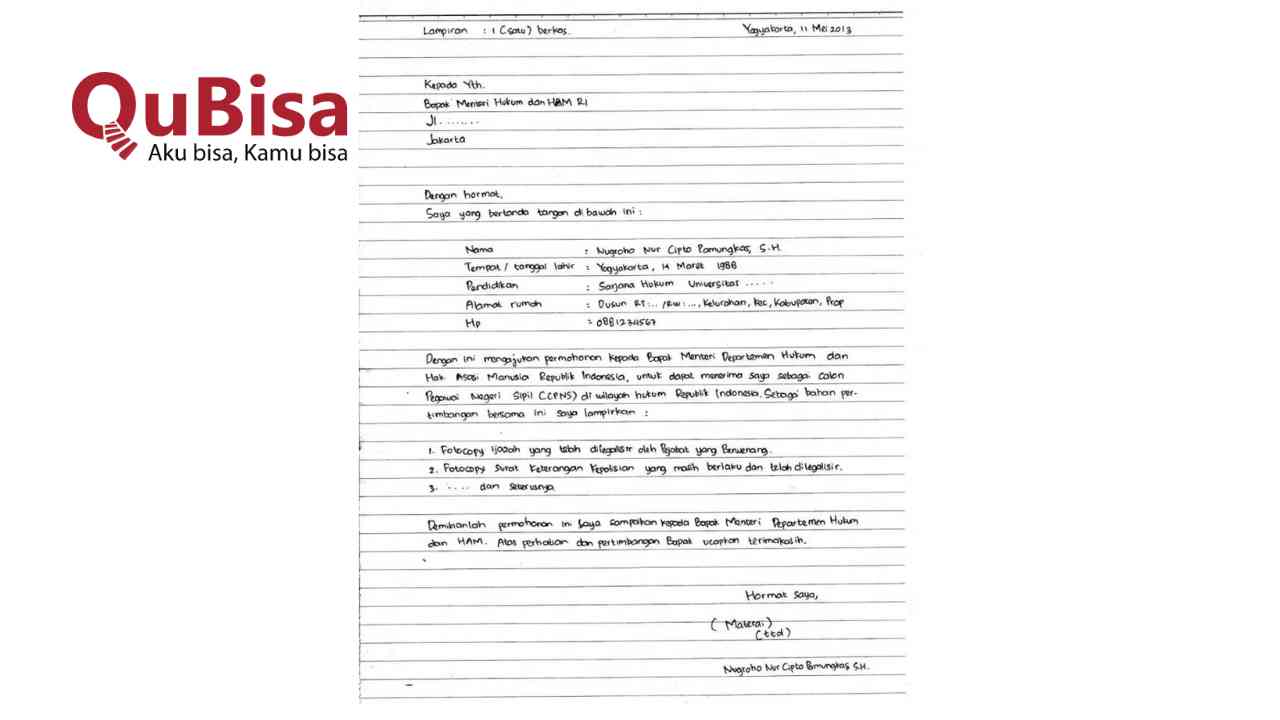 QuBisa
Aku bisa, Kamu bisa
Lampiran : 1 (satu) berkas.
Yogyakarta, 11 Mei 2013
Kepada Yth.
Bapak Menteri Hukum dan HAM RI
Jl. .......
Jakarta
Dengan hormat,
Saya yang bertanda tangan dibawah ini :
Nama : Nugroho Nur Cipto Pamungkas, S.H.
Tempat / tanggal lahir : Yogyakarta, 14 Maret 1988
Pendidikan : Sarjana Hukum Universitas .....
Alamat rumah : Dusun RT:... /RW:..., Kelurahan, Kec, Kabupaten, Prop
Hp : 0881234567
Dengan ini mengajukan permohonan kepada Bapak Menteri Departemen Hukum dan
Hak Asasi Manusia Republik Indonesia, untuk dapat menerima saya sebagai calon
Pegawai Negeri Sipil (CPNS) di wilayah hukum Republik Indonesia. Sebagai bahan per-
timbangan bersama ini saya lampirkan :
1. Fotocopy ijazah yang telah dilegalisir oleh Pejabat yang Berwenang.
2. Fotocopy Surat Keterangan Kepolisian yang masih berlaku dan telah dilegalisir.
3. ..... dan seterusnya
Demikianlah permohonan ini saya sampaikan kepada Bapak Menteri Departemen Hukum
dan HAM. Atas perhatian dan pertimbangan Bapak ucapkan terimakasih.
Hormat saya,
( Materai )
(ttd)
Nugroho Nur Cipto Pamungkas S.H.